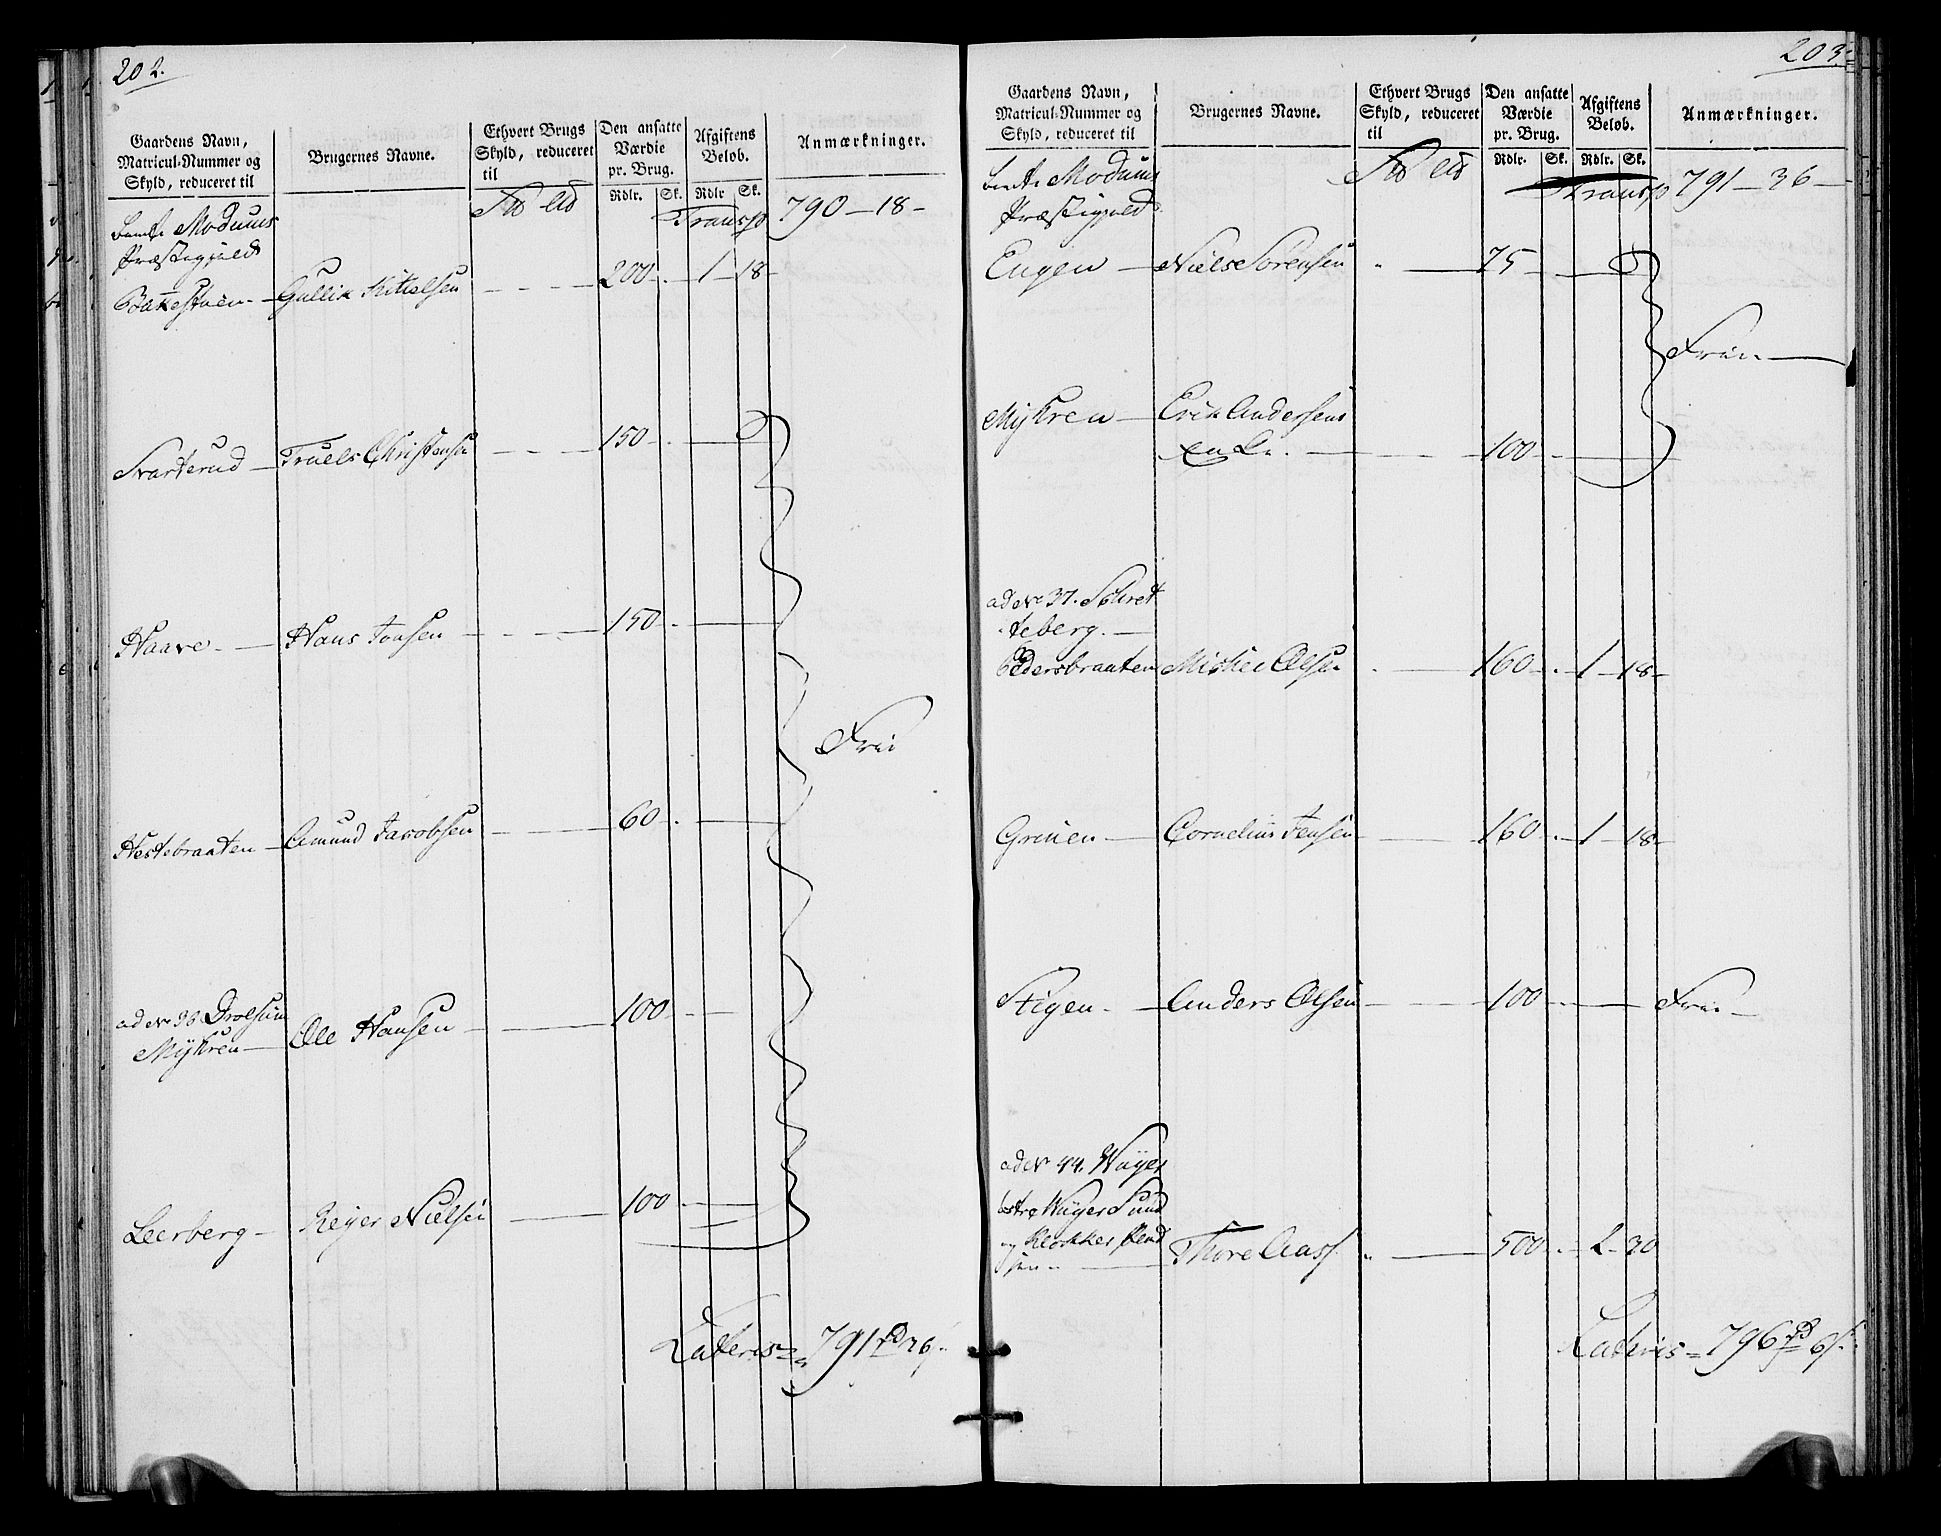 202.
Gaardens Navn, Matricul-Nummer og Skyld, reduceret til
Brugernes Navne.
Ethvert Brugs Skyld, reduceret til
Den ansatte Værdie pr. Brug.
Afgiftens Beløb.
Anmærkninger.
Rdlr. Sk. Rdlr Sk.
Modums Transp 790 – 18 –
Præstegjeld
Bakestuen – Gullik Kittelsen 200 – 1 – 18 –
Svarterud – Truels Christensen 150 –
Haave. – Hans Jonsen 150 –
Frii
Hestebraaten – Amund Jacobsen 60 –
ad No 36 Drolsum
Mÿhren – Ole Hansen 100 –
Leerberg – Reyer Nielsen 100 –
Lateris = 791 rd 36 s.
203.
Gaardens Navn, Matricul-Nummer og Skyld, reduceret til
Brugernes Navne.
Ethvert Brugs Skyld, reduceret til
Den ansatte Værdie pr. Brug.
Afgiftens Beløb.
Anmærkninger.
Rdlr. Sk. Rdlr. Sk.
Modums Transp 791 – 36 –
Præstegjeld
Engen – Niels Sørensen 75 –
Frii –
Mÿhren – Erik Andersens
Enke. 100 –
ad No 37. Schret
teberg. –
Pedersbraaten Mickel Olsen 160 – 1 – 18 –
Grinen – Cornelius Jensen 160 – 1 – 18 –
Stigen. – Anders Olsen 100 – Frii –
ad No 44. Wÿger
østre Wÿger Sund
og Klokker
Thore Aass 500 – 2 – 30
Lateris = 796 rd 6 s.